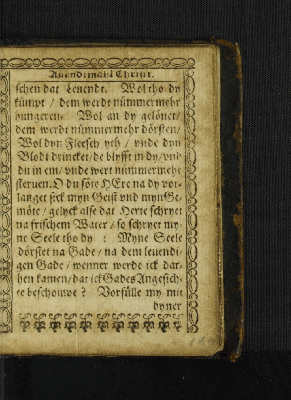 Auendtmahl Christi.
schen dat Leuendt. Wol tho dy
kümpt / dem werdt nümmermehr
hungeren. Wol an dy gelöuet/
dem werdt nümmermehr dörsten/
Wol dyn Fleesch yth / vnde dyn
Blodt drincket/ de blyfft in dy/vnd
du in em/ vnde wert nümmermehr
steruen. O du söte HEre na dy vor-
langet sick myn Geist vnd myn Ge-
möte / gelyck alse dat Herte schryet
na frischem Water / so schryet my-
ne Seele tho dy : Myne Seele
dörstet na Gade / na dem leuendi-
gen Gade / wenner werde ick dar-
hen kamen/ dat ick Gades Angesich-
te beschouwe ? Vorfülle my mit
dyner